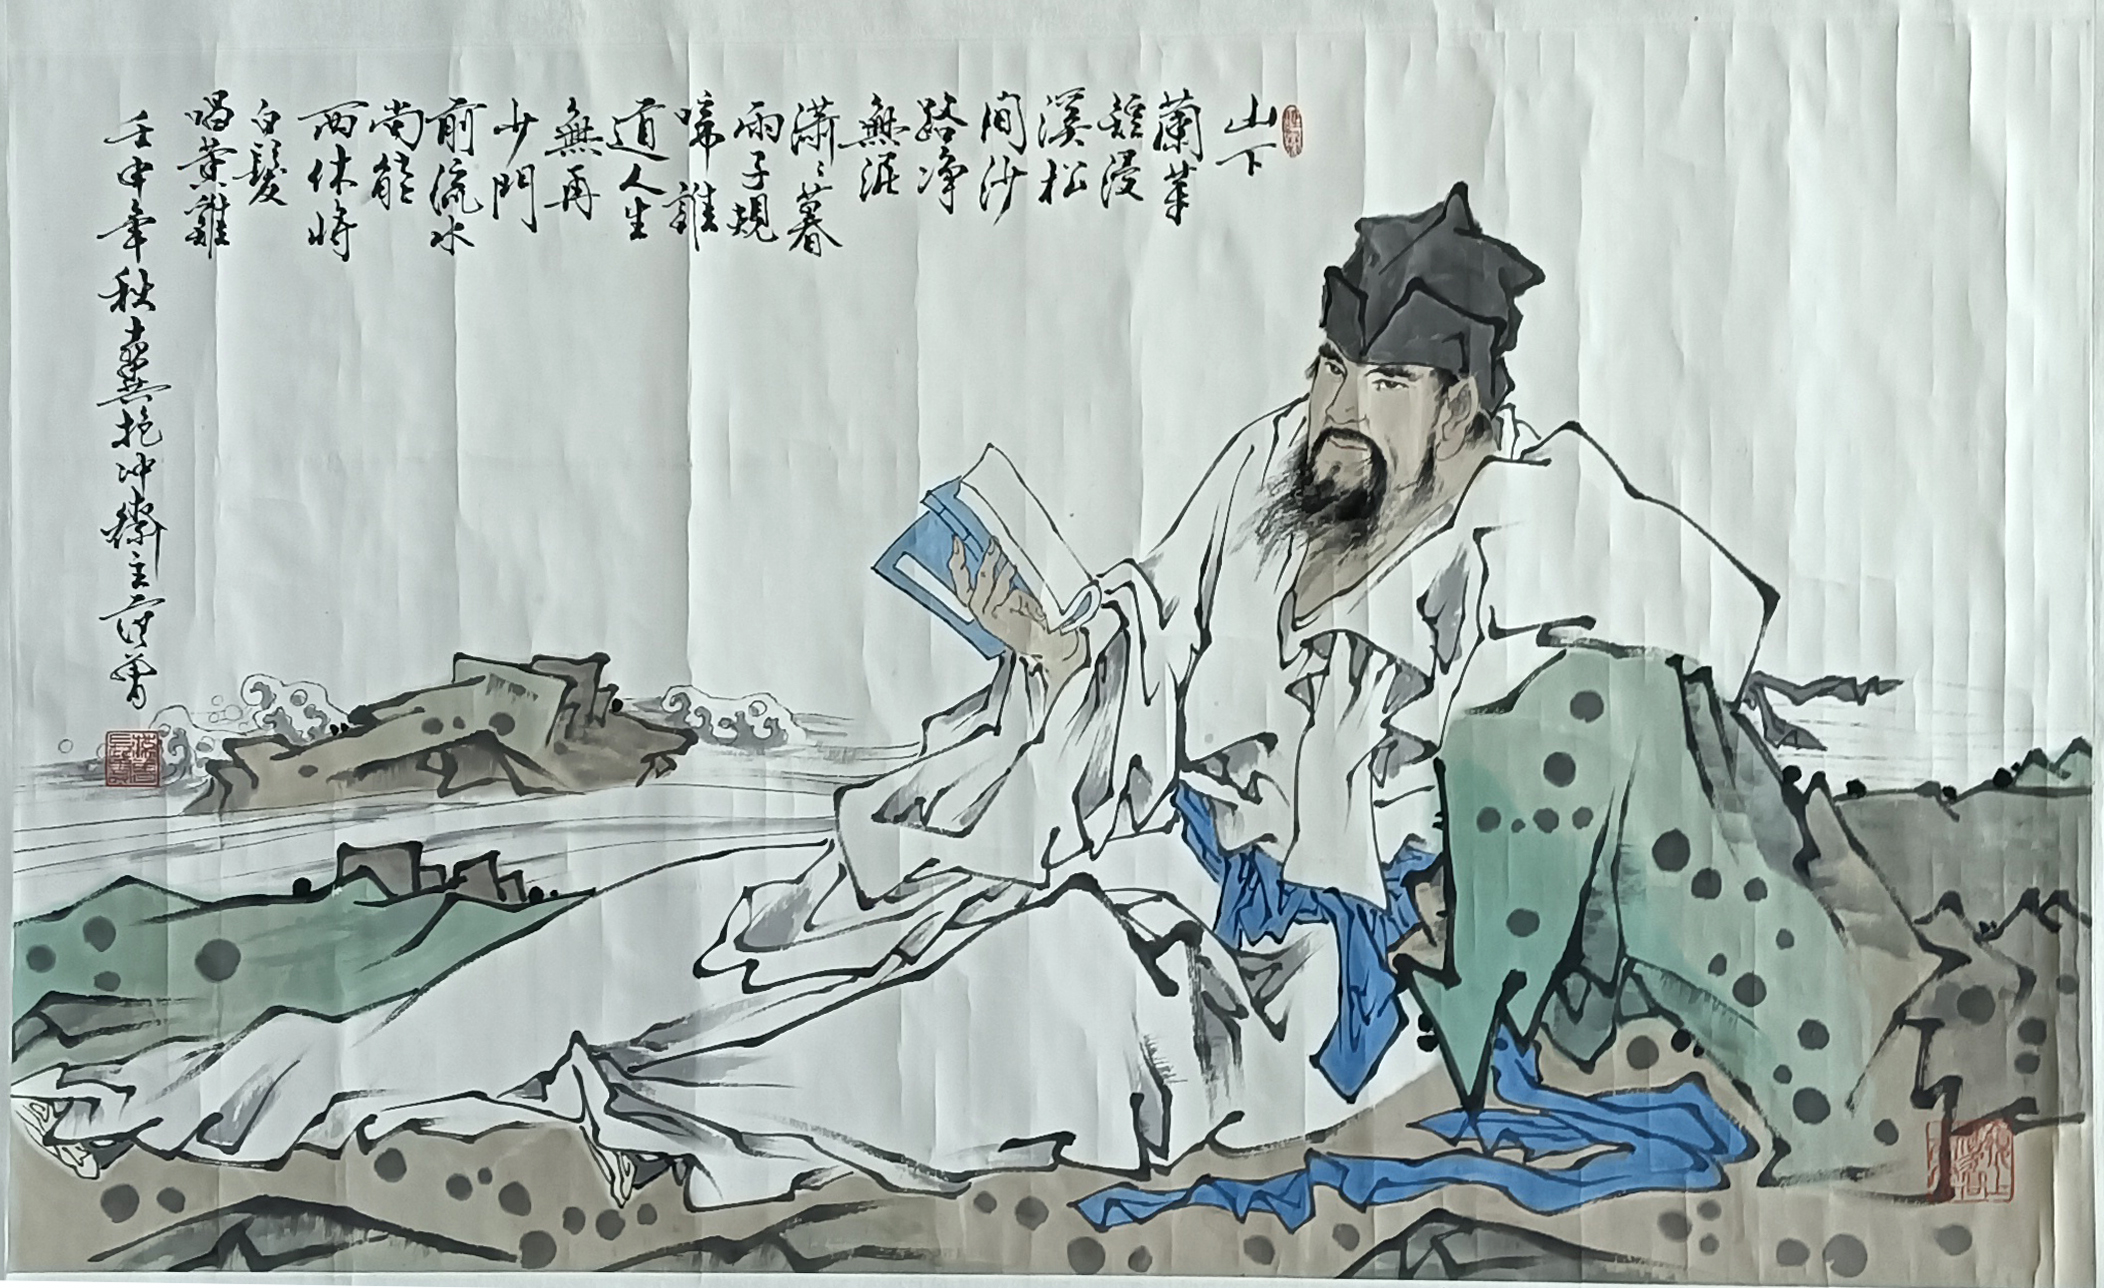 山下
蘭芽
短浸
溪松
間沙
路净
無泥
瀟〻暮
雨子規
啼誰
道人生
無再
少門
前流水
尚能
西休將
白髮
唱黄雞
壬申年秋十翼抱冲齋主范曾